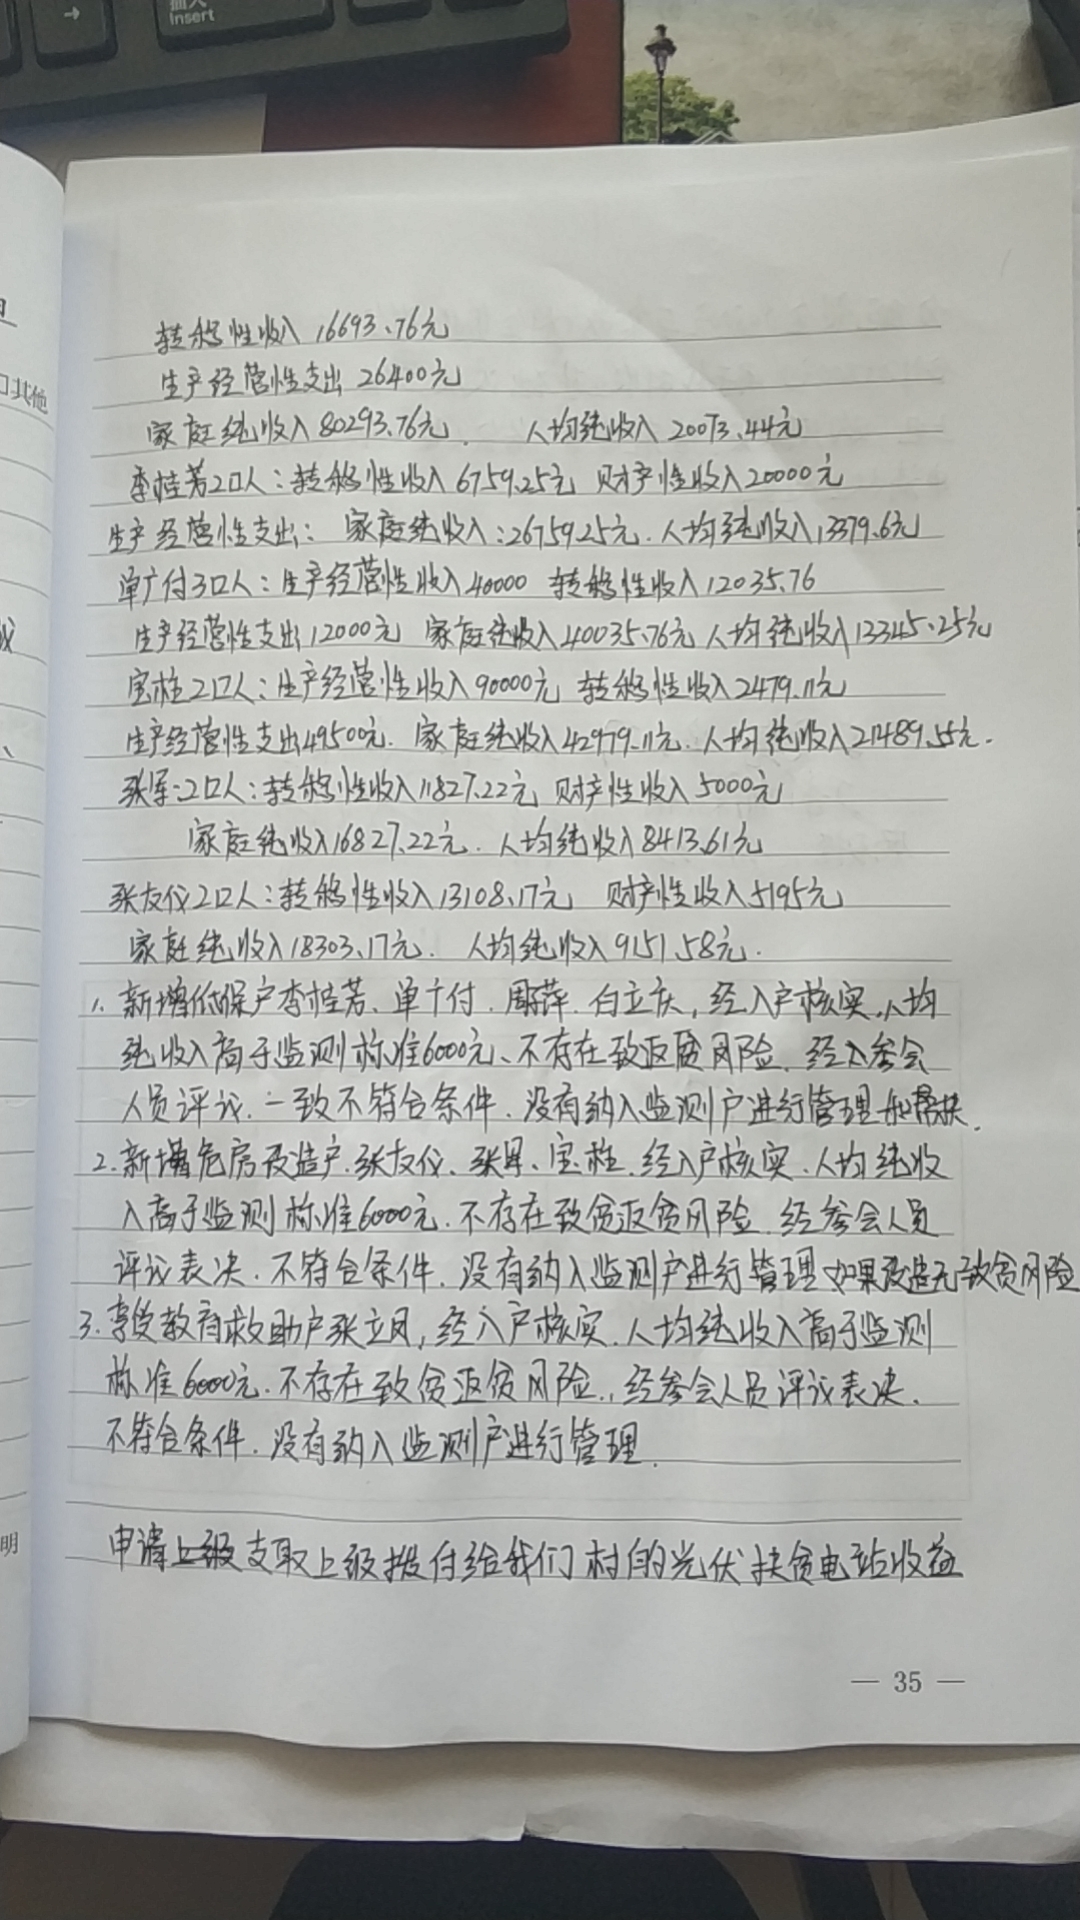 插入
Insert
→
□其他
明
转移性收入 16693.76元
生产经营性支出 26400元
家庭纯收入 80293.76元. 人均纯收入 20073.44元
李桂芳2口人：转移性收入 6759.25元 财产性收入20000元
生产经营性支出： 家庭纯收入：26759.25元. 人均纯收入13379.6元
单广付3口人：生产经营性收入40000 转移性收入12035.76
生产经营性支出12000元 家庭纯收入40035.76元 人均纯收入13345.25元
宝柱2口人：生产经营性收入90000元 转移性收入2479.11元
生产经营性支出49500元. 家庭纯收入42979.11元. 人均纯收入21489.55元.
张军:2口人：转移性收入11827.22元 财产性收入5000元
家庭纯收入16827.22元. 人均纯收入8413.61元
张友仪2口人：转移性收入13108.17元 财产性收入5195元
家庭纯收入18303.17元. 人均纯收入9151.58元.
1. 新增低保户李桂芳、单广付. 周萍. 白立庆, 经入户核实.人均
纯收入高于监测标准6000元、不存在致返贫风险. 经入参会
人员评议. 一致不符合条件. 没有纳入监测户进行管理和帮扶.
2. 新增危房改造户.张友仪、张军、宝柱. 经入户核实. 人均纯收
入高于监测标准6000元. 不存在致贫返贫风险. 经参会人员
评议表决. 不符合条件. 没有纳入监测户进行管理.如果改造无致贫风险
3. 享受教育救助户张立凤, 经入户核实. 人均纯收入高于监测
标准6000元. 不存在致贫返贫风险., 经参会人员评议表决.
不符合条件. 没有纳入监测户进行管理.
申请上级支取上级拨付给我们村的光伏扶贫电站收益
— 35 —